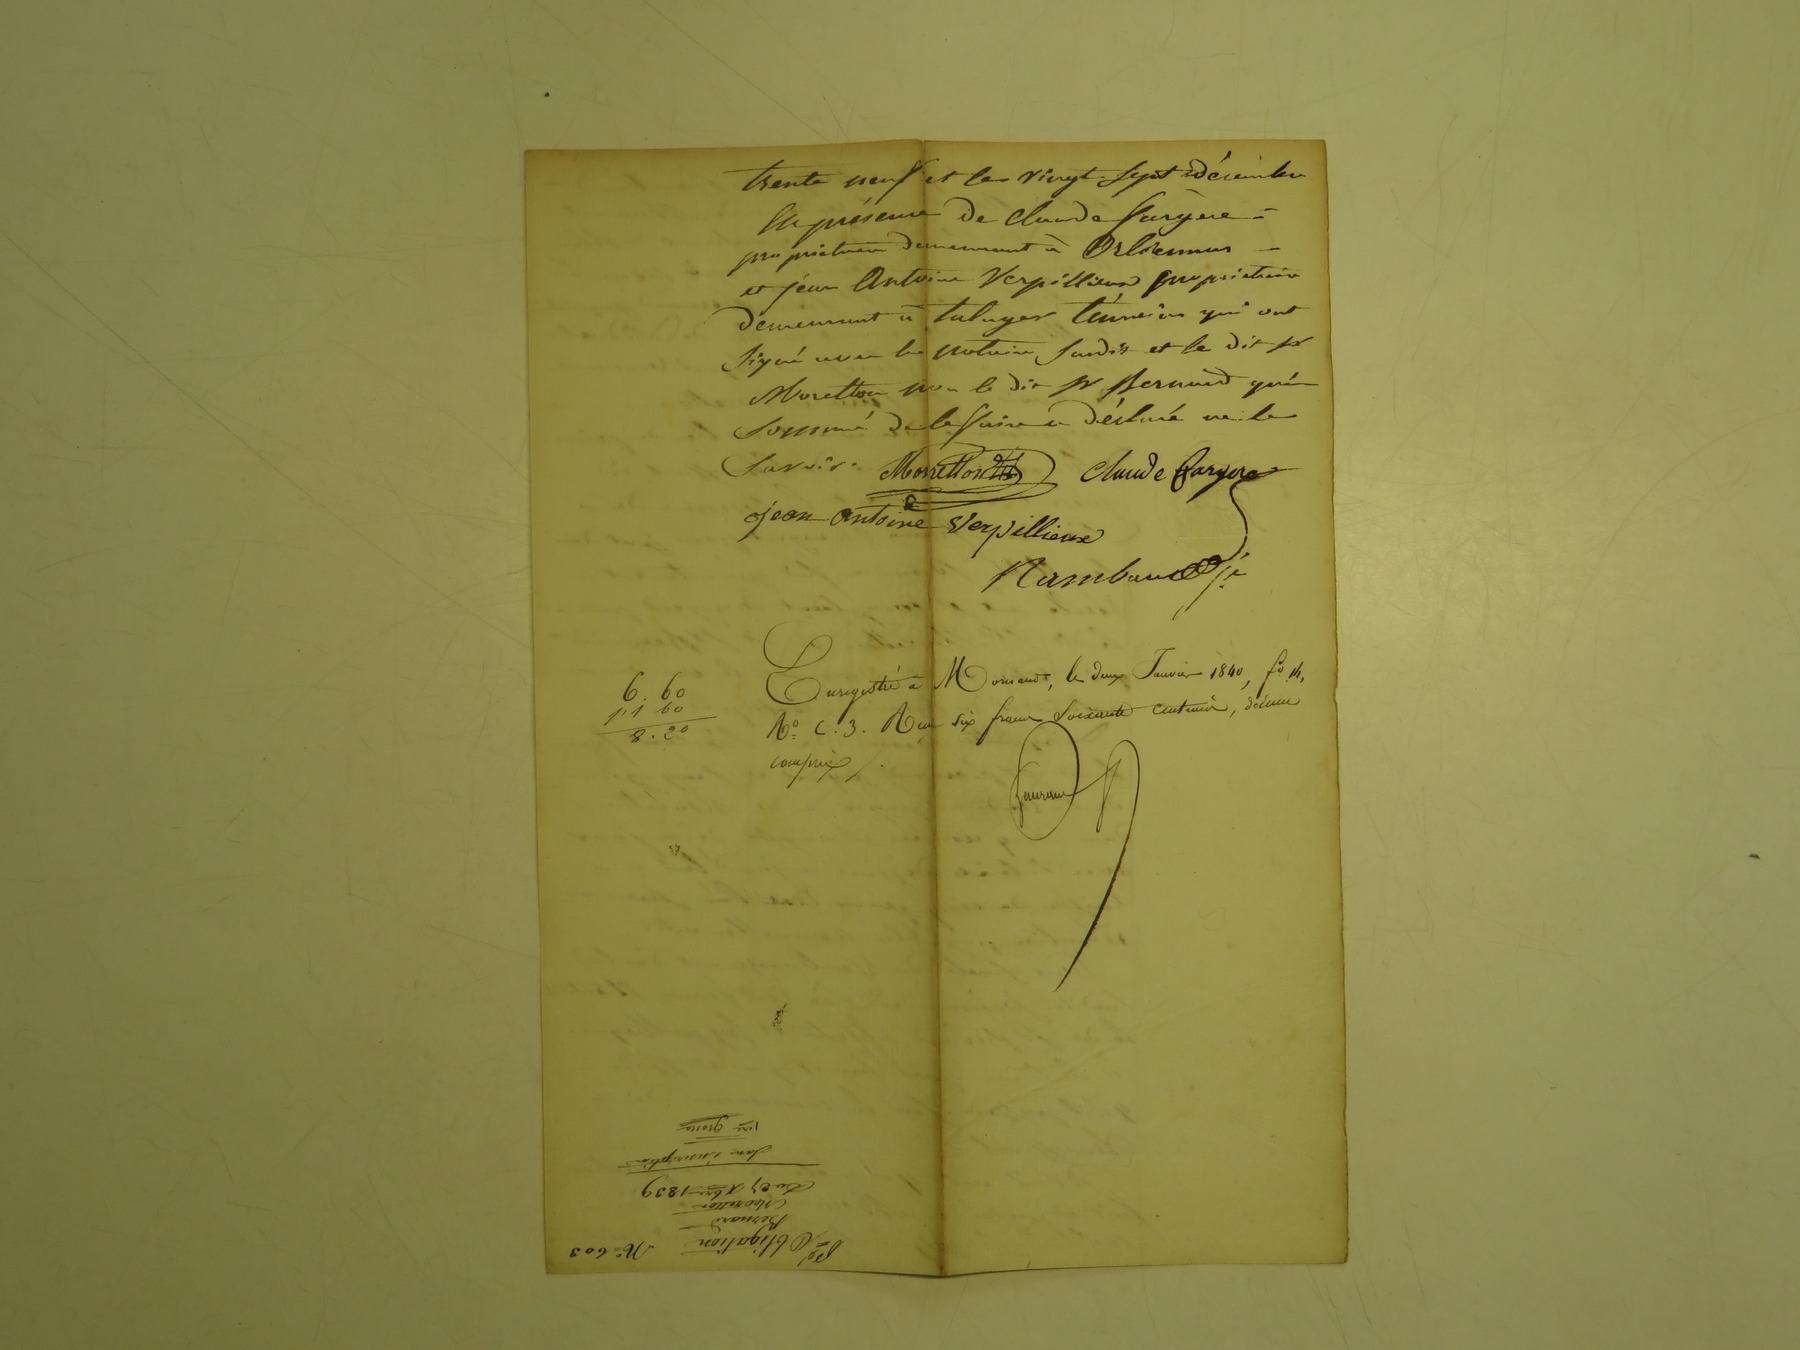 trente neuf et le vingt-sept décembre
En présence de Claude fargère
propriétaire demeurant à Orliennas
et jean Antoine Verpillieux propriétaire
demeurant à taluyer témoins qui ont
signé avec le notaire susdit et le dit sr
Morellon non le dit sr Bernard qui
sommé de le faire a déclaré ne le
savoir.
Morellon Claude fargere
jean antoine verpillieux
Rambaud
Enregistré à Mornant, le deux Janvier 1840, fo
No C. 3. Reçu six francs soixante centimes, décime
compris
6. 60
1 60
8. 20
No 603
Obligation
Bernard
Morellon
Du 27 Xbre 1839
sans inscription
1ere grosse